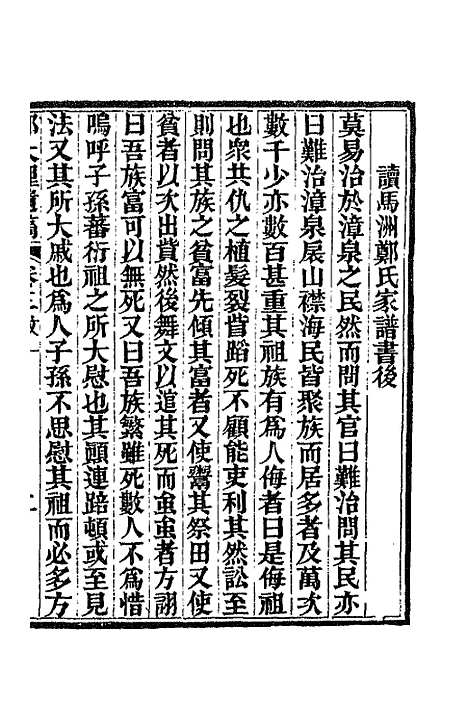 讀馬洲鄭氏家譜書後
莫易治於漳泉之民然而問其官曰難治問其民亦
曰難治漳泉扆山襟海民皆聚族而居多者及萬次
數千少亦數百甚重其祖族有為人侮者曰是侮祖
也衆共仇之植髮裂眥蹈死不顧能吏利其然訟至
則問其族之貧富先傾其富者又使鬻其祭田又使
貧者以次出貲然後舞文以道其死而䖝䖝者方詡
曰吾族富可以無死又曰吾族繁雖死數人不為惜
嗚呼子孫蕃衍祖之所大慰也其顚連踣頓或至見
法又其所大戚也為人子孫不思慰其祖而必多方